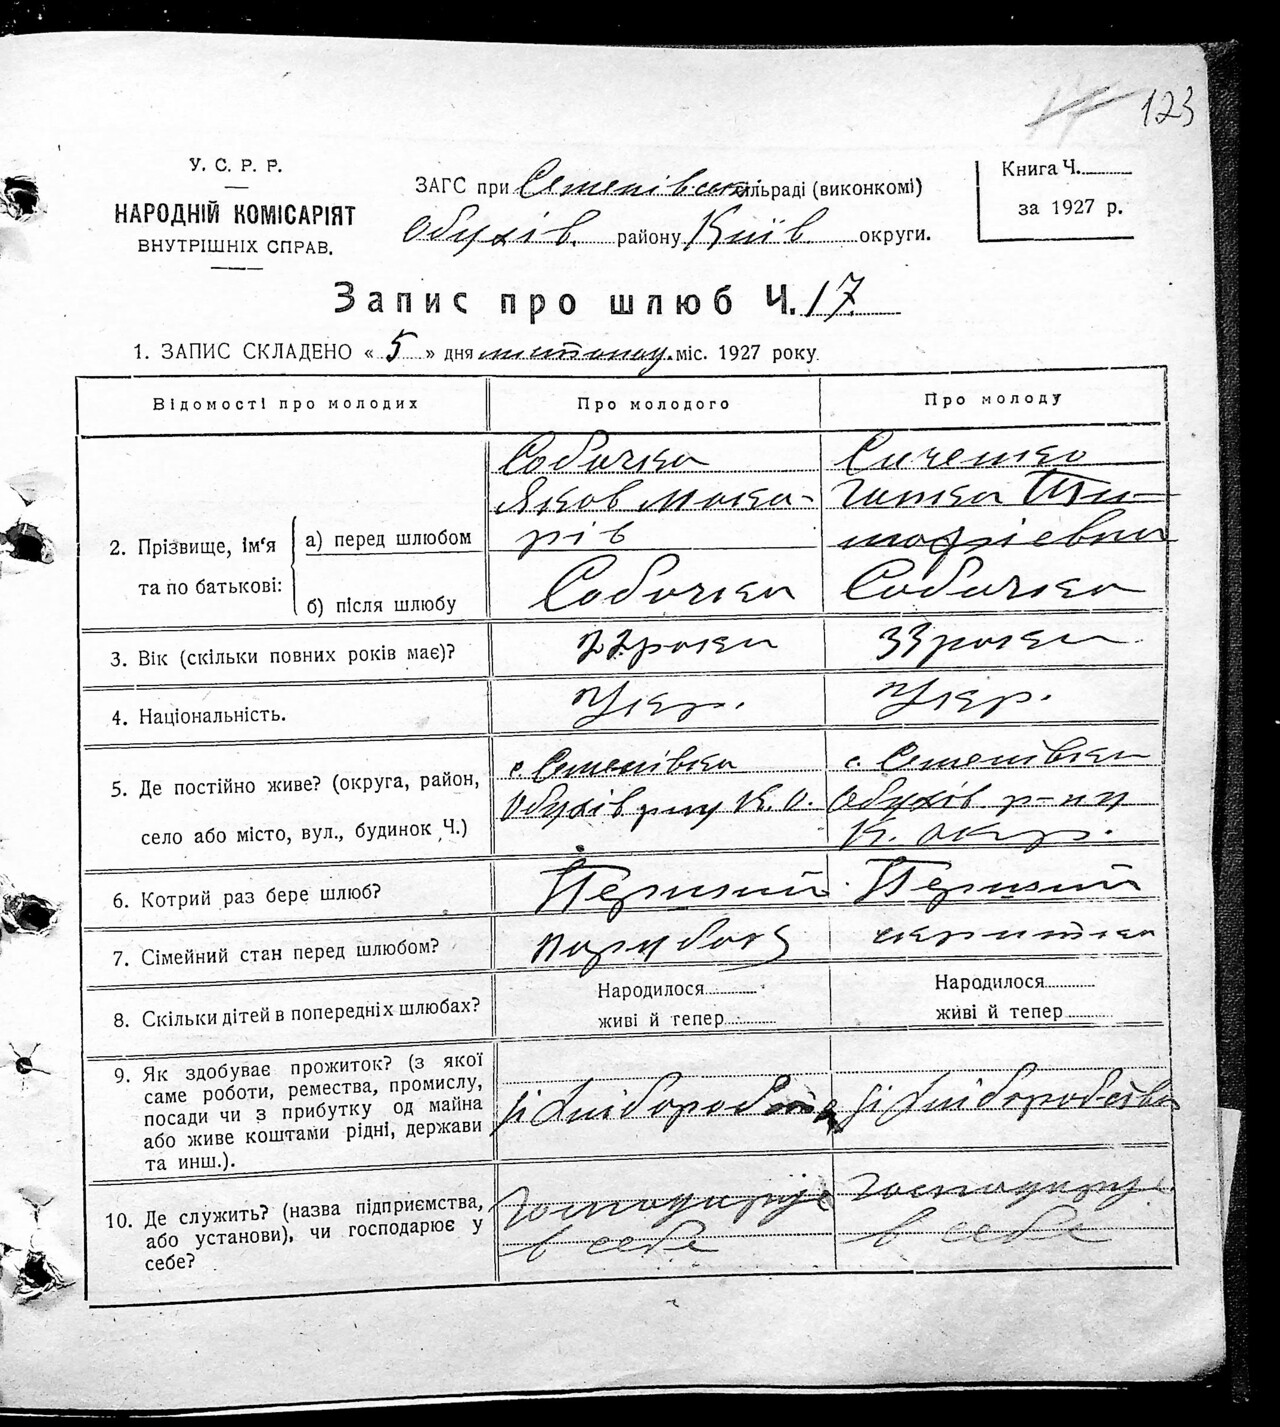 123
У. С. Р. Р.
НАРОДНІЙ КОМІСАРІЯТ
ВНУТРІШНІХ СПРАВ.
ЗАГС при Семенівській сільраді (виконкомі)
Обухів. району Київ. округи.
Книга Ч.
за 1927 р.
Запис про шлюб Ч. 17.
1. ЗАПИС СКЛАДЕНО « 5 » дня листопад. міс. 1927 року
Відомості про молодих
Про молодого
Про молоду
2. Прізвище, ім'я та по батькові:
а) перед шлюбом
Собочка
Яков Мака-
рів
Сиченко
Ти-
мофієвна
б) після шлюбу
Собочка
Собочка
3. Вік (скільки повних років має)?
22 роки
33 роки
4. Національність.
Укр.
Укр.
5. Де постійно живе? (округа, район,
село або місто, вул., будинок Ч.)
с. Семенівка
Обухів р-ну К. О.
с. Семенівка
Обухів р-ну
К. окр.
6. Котрий раз бере шлюб?
Перший
Перший
7. Сімейний стан перед шлюбом?
парубок
8. Скільки дітей в попередніх шлюбах?
Народилося
живі й тепер
Народилося
живі й тепер
9. Як здобуває прожиток? (з якої
саме роботи, ремества, промислу,
посади чи з прибутку од майна
або живе коштами рідні, держави
та инш.).
зі хліборобства
зі хліборобства
10. Де служить? (назва підприємства,
або установи), чи господарює у
себе?
Господарює
в себе
Господарює
в себе